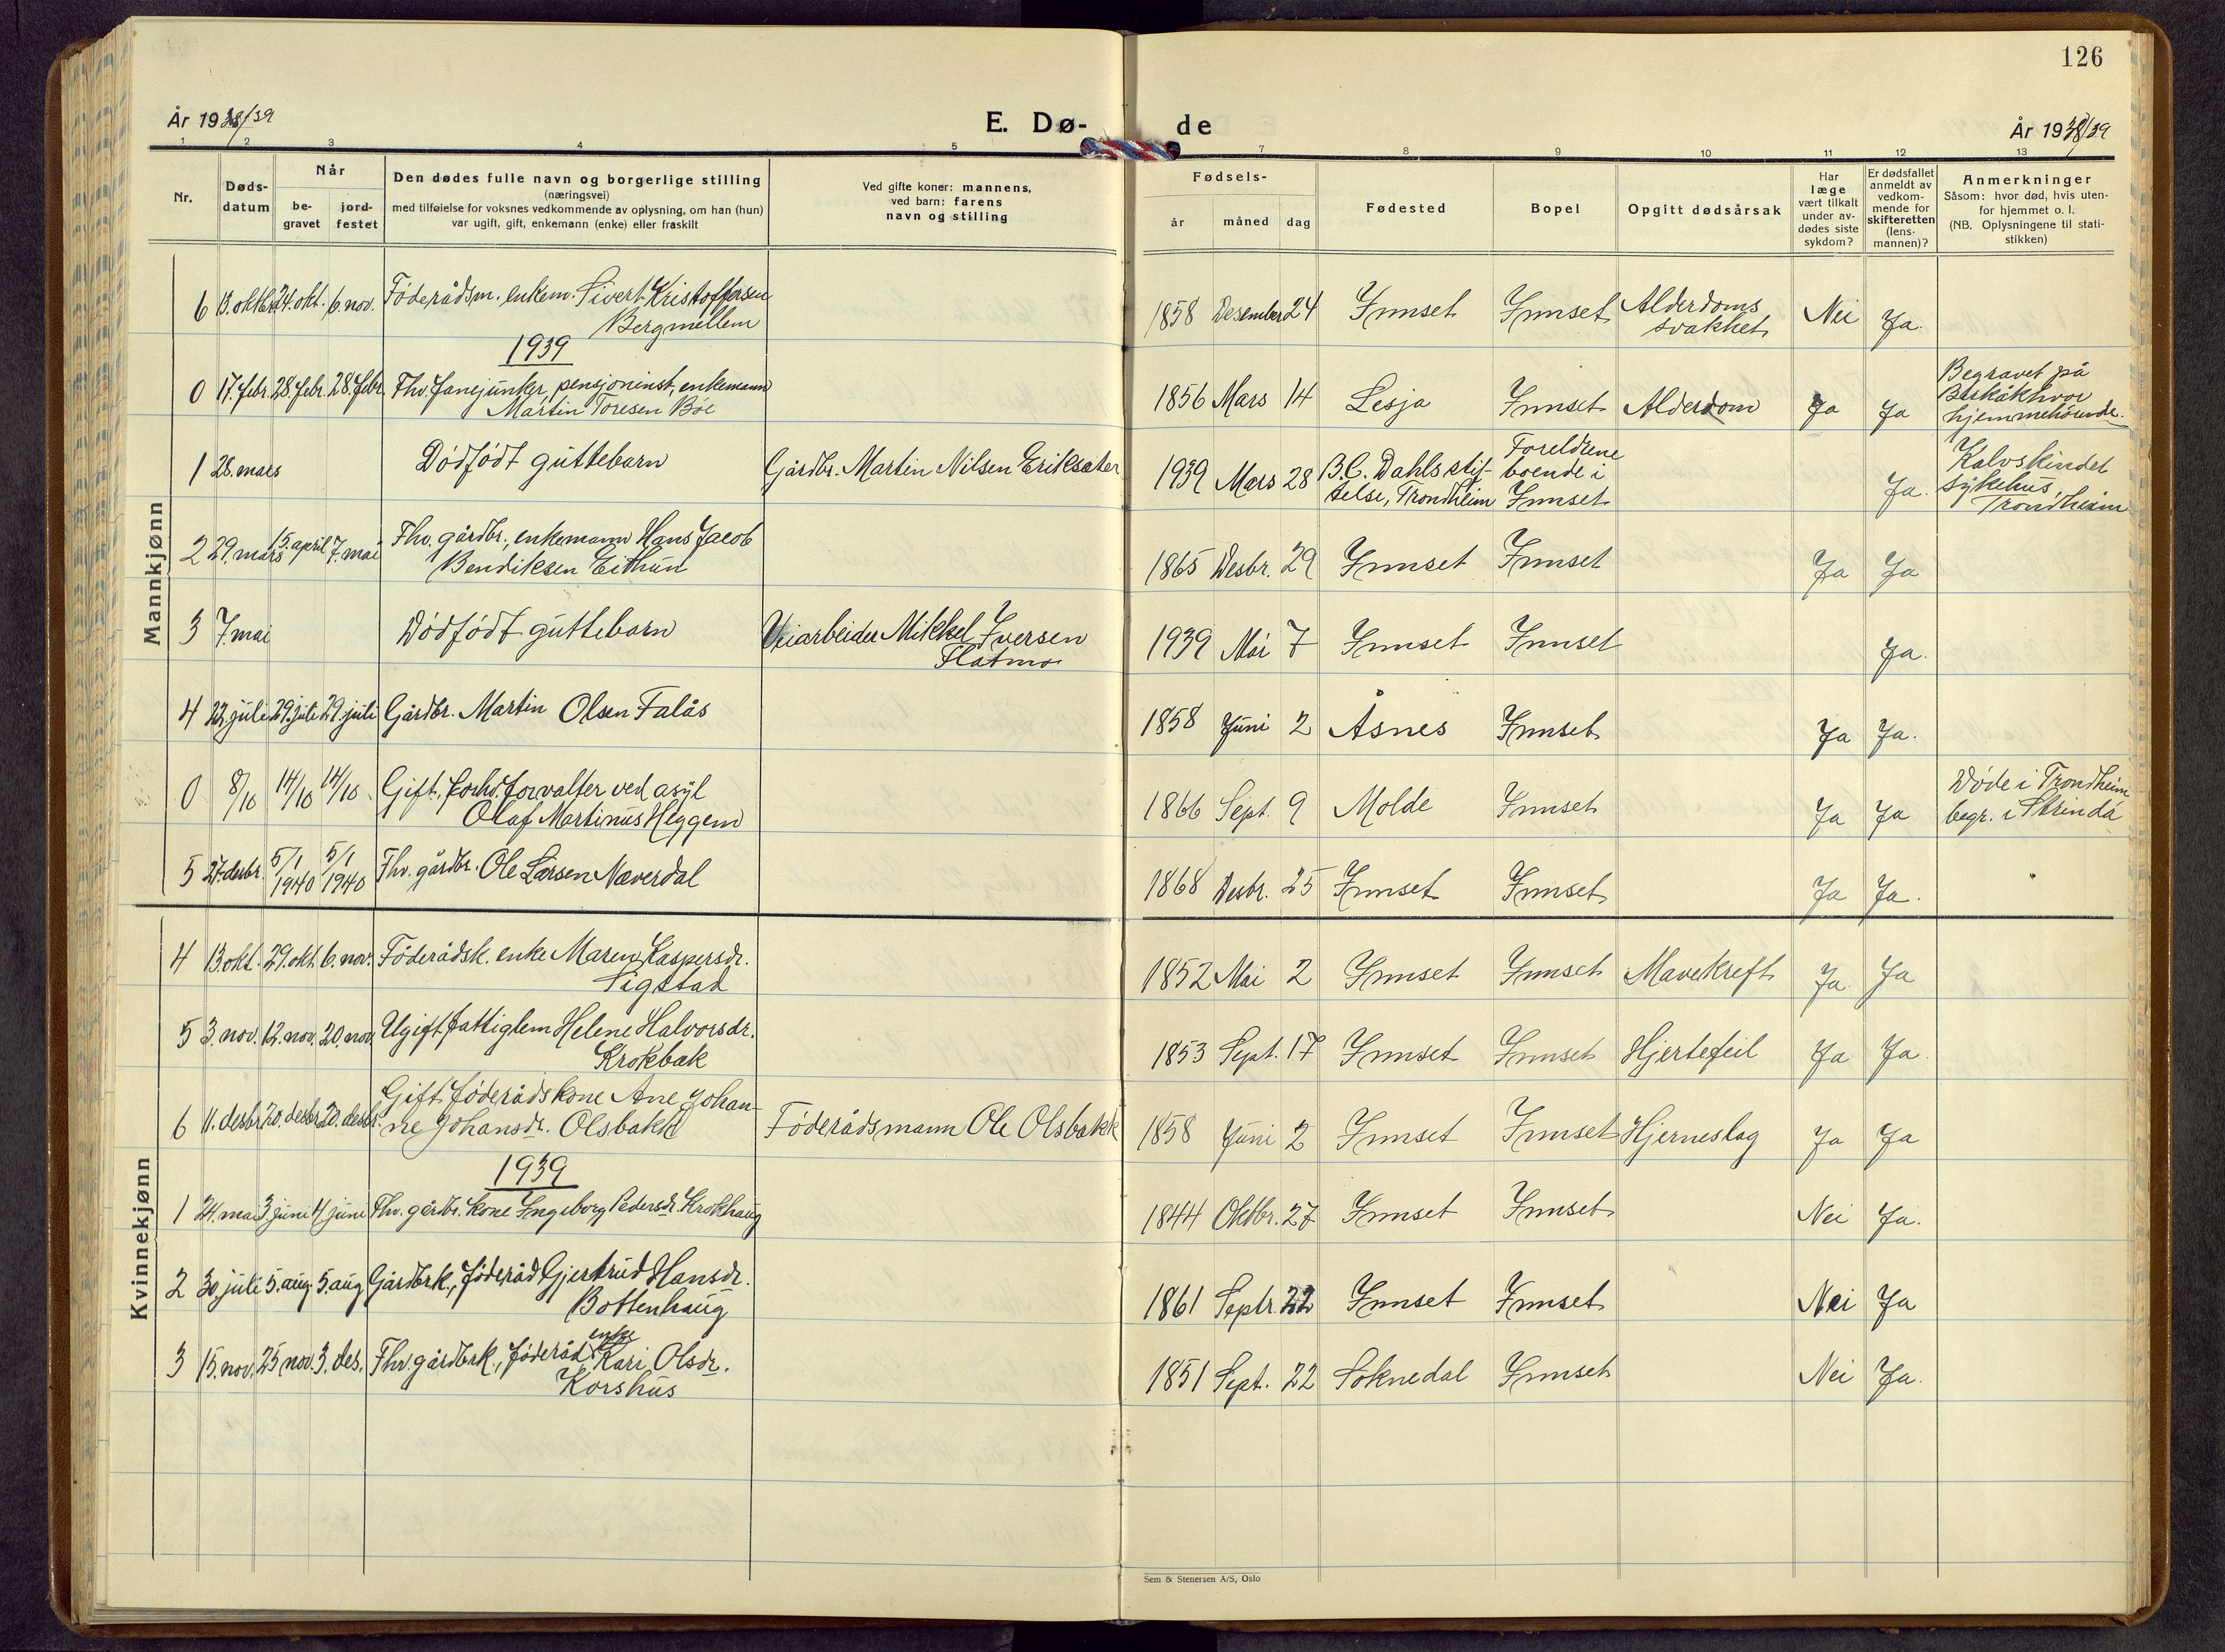 126
År 1938/39
E. Dø-
de
År 1938/39
1 2 3 4 5 7 8 9 10 11 12 13
Nr.
Døds-
datum
Når
be-
gravet
jord-
festet
Den dødes fulle navn og borgerlige stilling
(næringsvei)
med tilføielse for voksnes vedkommende av oplysning, om han (hun)
var ugift, gift, enkemann (enke) eller fraskilt
Ved gifte koner: mannens,
ved barn: farens
navn og stilling
Fødsels-
år
måned
dag
Fødested
Bopel
Opgitt dødsårsak
Har
læge
vært tilkalt
under av-
dødes siste
sykdom?
Er dødsfallet
anmeldt av
vedkom-
mende for
skifteretten
(lens-
mannen)?
Anmerkninger
Såsom: hvor død, hvis uten-
for hjemmet o. l.
(NB. Oplysningene til stati-
stikken)
Mannkjønn
6 13. oktbr. 24. okt. 6. nov. Föderådsm. enkem. Sivert Kristoffersen
Bergmellem
1858 Desember 24 Innset Innset Alderdoms
svakhet Nei Ja
1939
0 17. febr. 28. febr. 28. febr. Fhv. fanejunker, pensjoninst, enkemann
Martin Toresen Böe
1856 Mars 14 Lesja Innset Alderdom Ja Ja
Begravet på
Berkåk hvor
hjemmehörende.
1 28. mars Dödfödt guttebarn Gårdbr. Martin Nilsen Eriksæter
1939 Mars 28 B.C. Dahls stif-
telse, Trondheim
Foreldrene
boende i
Innset
Ja.
Kalvskindet
sykehus,
Trondheim
2 29. mars 15. april 7. mai Fhv. gårdbr., enkemann Hans Jacob
Bendiksen Eithun
1865 Desbr. 29 Innset Innset Ja Ja
3 7. mai Dödfödt guttebarn Veiarbeider Mikkel Iversen
Flatmo
1939 Mai 7 Innset Innset Ja.
4 22. juli 29. juli 29. juli Gårdbr. Martin Olsen Falås
1858 Juni 2 Åsnes Innset Ja Ja.
0 8/10 14/10 14/10 Gift, forhv. forvalter ved asyl
Olaf Martinus Heggem
1866 Sept. 9 Molde Innset Ja Ja
Döde i Trondheim
begr. i Strinda
5 27. desbr. 5/1 1940 5/1 1940 Fhv. gårdbr. Ole Larsen Næverdal
1868 Desbr. 25 Innset Innset Ja Ja.
Kvinnekjønn
4 13. okt. 29. okt. 6. nov. Föderådsk. enke Maren Kaspersdr.
Sigstad
1852 Mai 2 Innset Innset Mavekreft Ja Ja
5 3. nov. 12. nov. 20. nov. Ugift fattiglem Helene Halvorsdr.
Krokbæk
1853 Sept. 17 Innset Innset Hjertefeil Ja Ja
6 11. desbr. 20. desbr. 20. desbr. Gift föderådskone Ane Johan-
ne Johansdr. Olsbakk
Föderådsmann Ole Olsbakk
1858 Juni 2 Innset Innset Hjerneslag Ja Ja
1939
1 24. mai 3. juni 4. juni Fhv. gårdbr. kone Ingeborg Pedersdr. Krokhaug
1844 Oktbr. 27 Innset Innset Nei Ja.
2 30. juli 5. aug. 5. aug Gårdbrk., föderåd Gjertrud Hansdr.
Bottenhaug
1861 Septr. 22 Innset Innset Nei Ja
3 15. nov. 25 nov. 3. des. Fhv. gårdbrk., föderåd enke Kari Olsdr.
Korshus
1851 Sept. 22 Soknedal Innset Nei Ja.
Sem & Stenersen A/S, Oslo